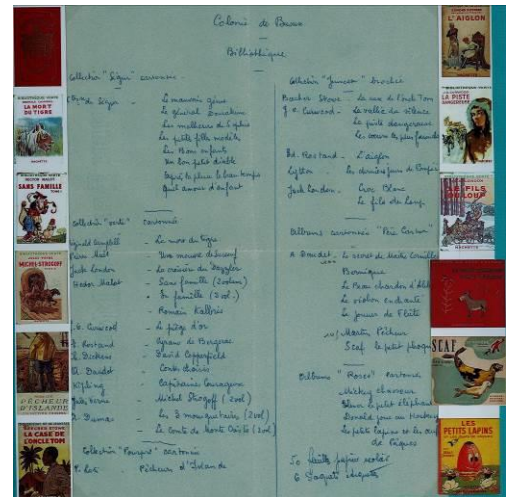 Colonie de
Bibliothèque
Collection "Ségur" cartonnée
Ctesse de Ségur - Le mauvais génie
Le général Dourakine
Les malheurs de Sophie
Les petites filles modèles
Les Bons enfants
Un bon petit diable
Après la pluie le beau temps
Quel amour d'enfant
Collection "verte" cartonnée
Reginald Campbell - La mort du tigre
Pierre Maël - Une mousmé
Jack London - La croisière du Dazzler
Hector Malot - Sans famille (2 volumes)
En famille (2 vol.)
Romain Kalbris
J.O. Curwood - Le piège d'or
E. Rostand - Cyrano de Bergerac
Ch. Dickens - David Copperfield
A. Daudet - Contes choisis
Kipling - Capitaines Courageux
Jules Verne - Michel Strogoff (2 vol)
A. Dumas - Les 3 mousquetaires (2 vol)
Le comte de Monte Cristo (2 vol)
Collection "Pourpre" cartonnée
P. Loti - Pêcheurs d'Islande
Collection "Junior" brochée
Beecher Stowe - La case de l'Oncle Tom
J.O. Curwood - La vallée du silence
La piste dangereuse
Ed. Rostand - L'aiglon
Lytton - Les derniers jours de Pompéi
Jack London - Croc Blanc
Le fils du loup
Albums cartonnés "Père Castor"
A. Daudet - Le secret de Maître Cornille
Bourrique
Le violon enchanté
Le joueur de flûte
Martin Pêcheur
Scaf le petit phoque
Albums "Roses" cartonnés
Mickey chasseur
Elmer le petit éléphant
Les petits lapins et les œufs
de Pâques
50 feuilles papier écolier
6
LA MORT
DU TIGRE
HACHETTE
HECTOR MALOT
SANS FAMILLE
MICHEL STROGOFF
PÊCHEUR
D'ISLANDE
LA CASE DE
L'ONCLE TOM
L'AIGLON
LA PISTE
DANGEREUSE
LE FILS
DU LOUP
HACHETTE
SCAF
LES
PETITS LAPINS